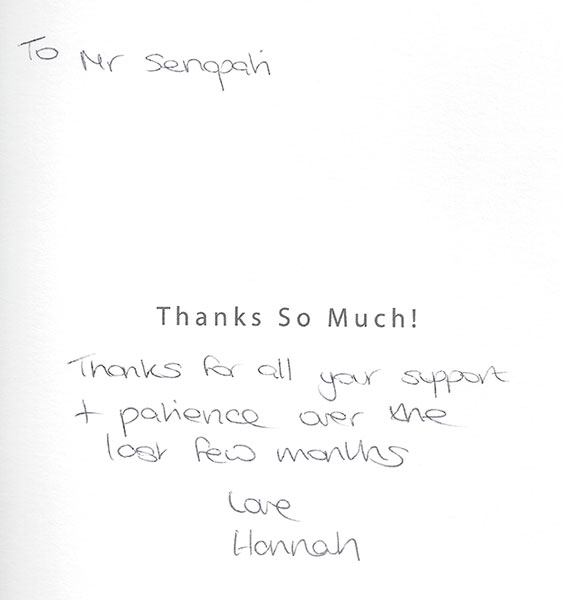 To Mr Sengpati
Thanks So Much!
Thanks for all your support
+ patience over the
last few months
Love
Hannah